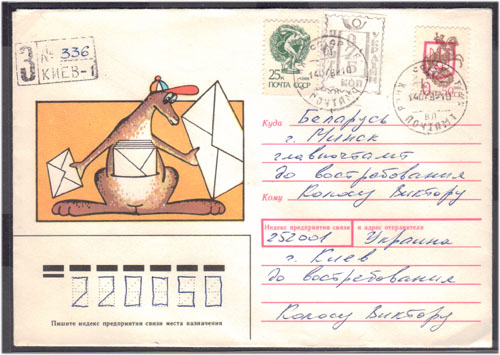 З
№ 336
КИЕВ-1
25к
ПОЧТА СССР
КОП
Куда Беларусь
г. Минск
главпочтамт
до востребования
Кому Колосу Виктору
Индекс предприятия связи и адрес отправителя
252001 Украина
г. Киев
до востребования
Колосу Виктору
220050
Пишите индекс предприятия связи места назначения